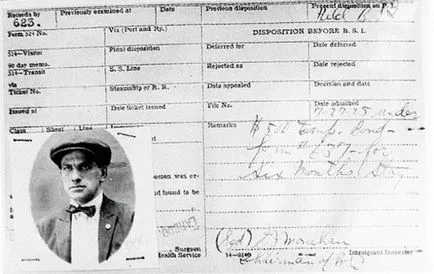 Records by Previously examined at Date Previous disposition Present disposition on P. I.
623. Held B.S.I.
Form 524 No. Via (Port and Ry.) DISPOSITION BEFORE B. S. I.
514—Visitor Final disposition Deferred for Date deferred
90 day memo.
514—Transit S. S. Line Rejected as Date rejected
via
Ticket No. Steamship or R. R. Date appealed Decision and date
Issued at Date ticket issued File No. Date admitted
7-27-25 under
Class Sheet Line Remarks $500 Temp. Bond-
form #637-for
six Months Stay
person was ex-
nd found to be
(Sgd) J. Monahan
Surgeon
Health Service 14—2149 Immigrant Inspector
Chairman of B.S.I.